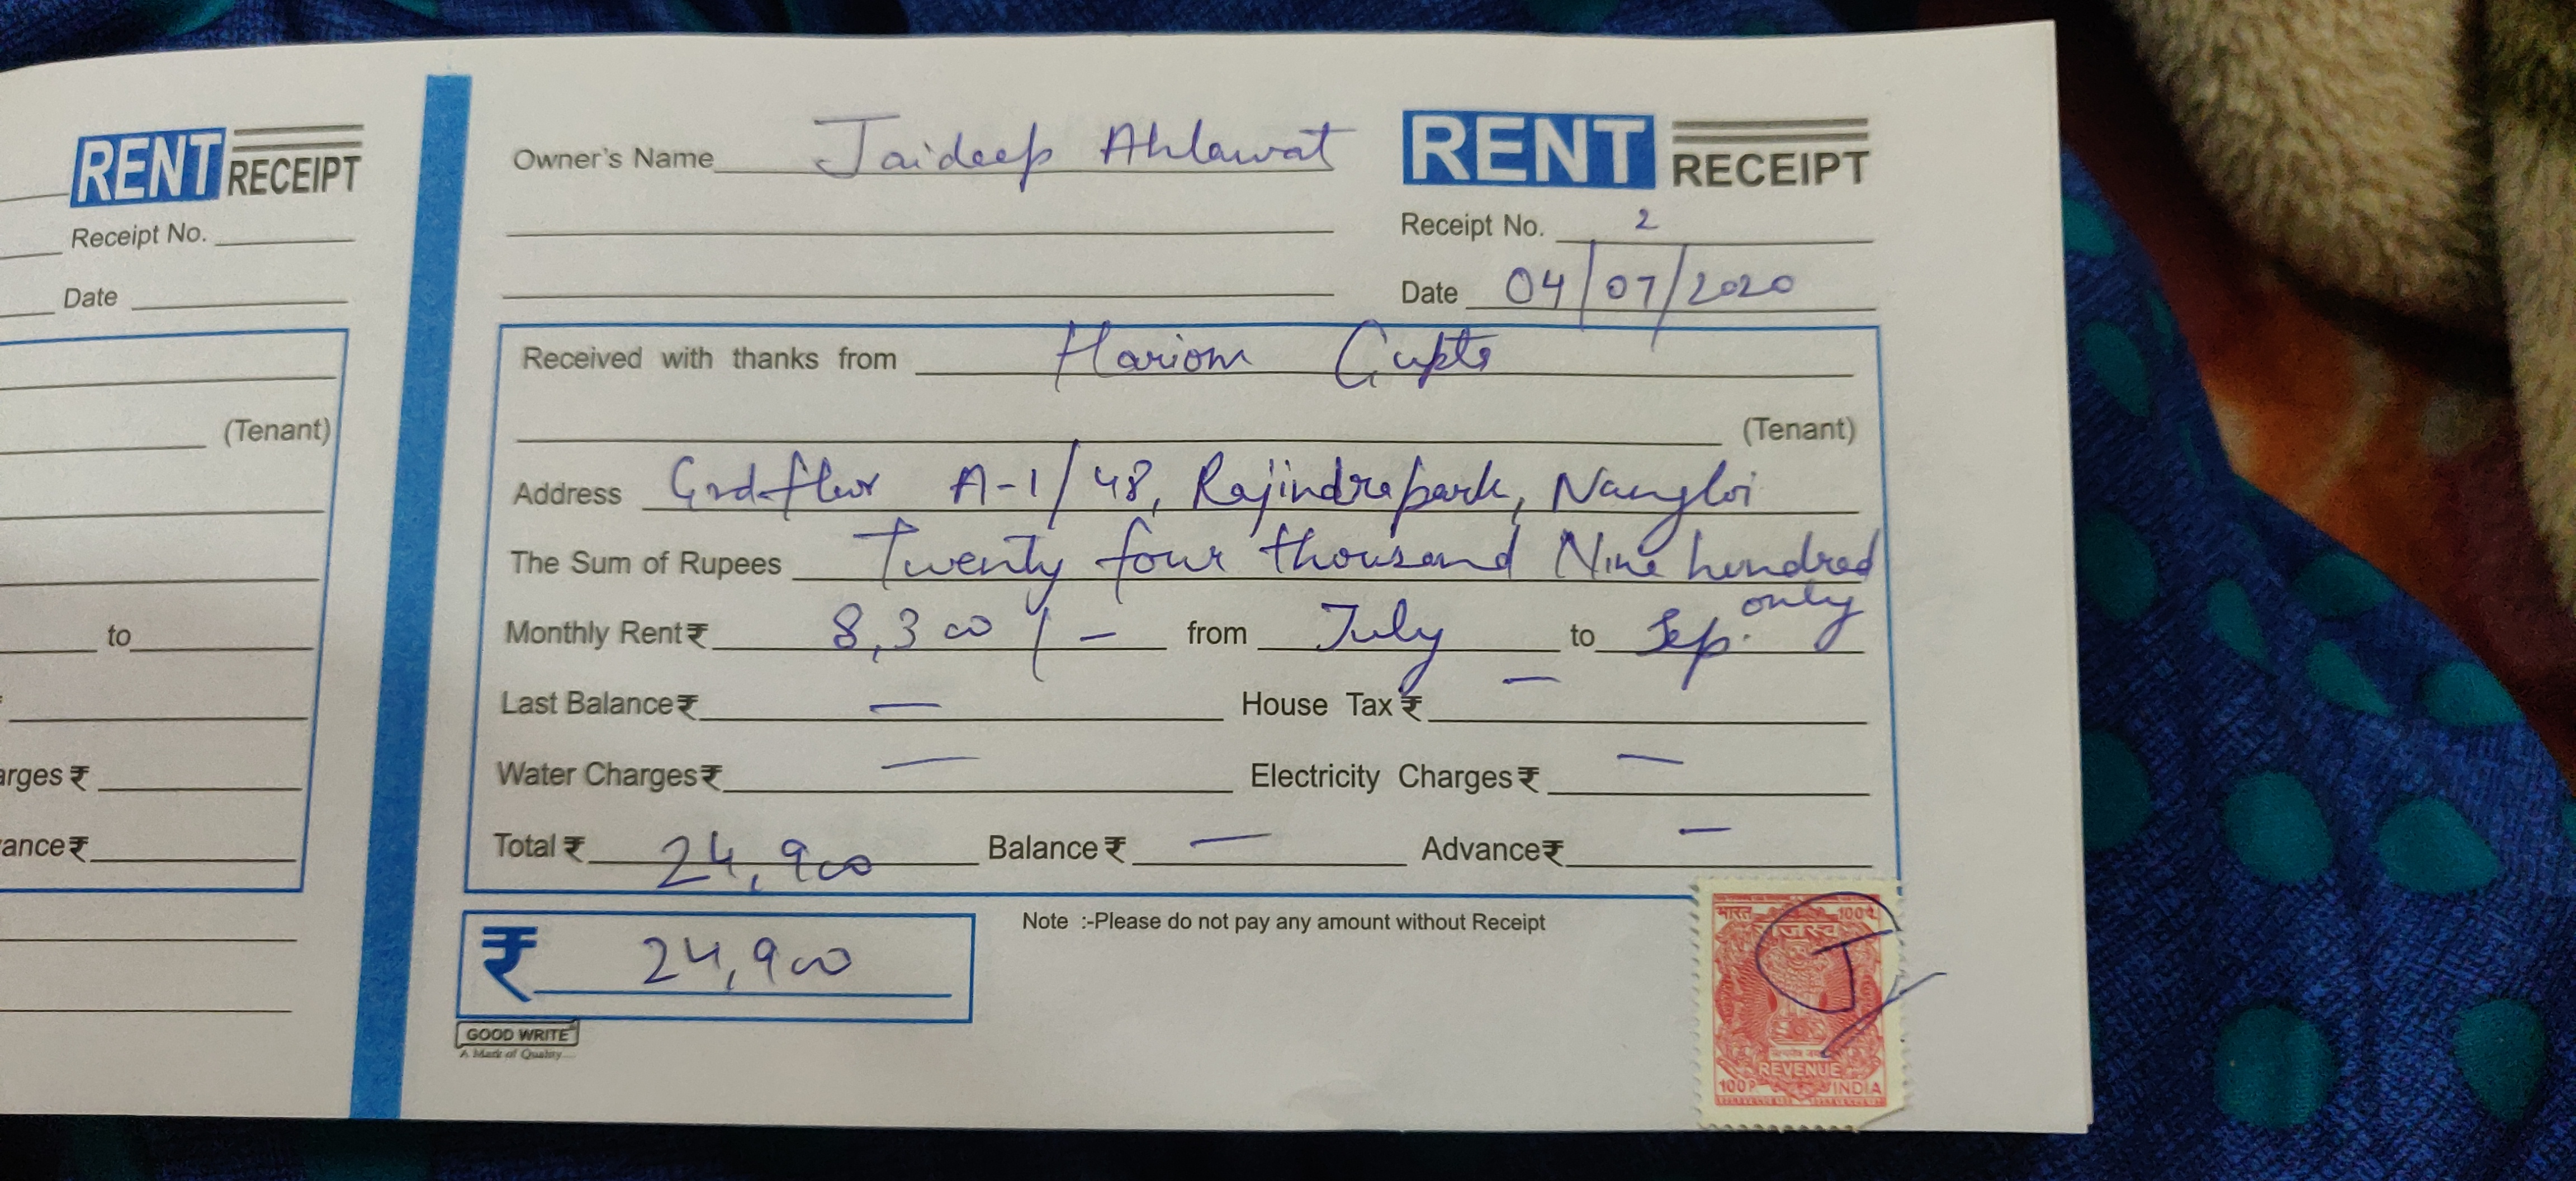 RENT RECEIPT
Receipt No.
Date
(Tenant)
to
arges ₹
ance ₹
Owner's Name Jaideep Ahlawat
RENT RECEIPT
Receipt No. 2
Date 04/07/2020
Received with thanks from Hariom Gupta
(Tenant)
Address Grd-floor A-1/48, Rajindra park, Nangloi
The Sum of Rupees Twenty four thousand Nine hundred only
Monthly Rent ₹ 8,300/- from July to Sep.
Last Balance ₹ — House Tax ₹ —
Water Charges ₹ — Electricity Charges ₹ —
Total ₹ 24,900 Balance ₹ — Advance ₹ —
₹ 24,900
Note :-Please do not pay any amount without Receipt
GOOD WRITE
A Mark of Quality....
100P REVENUE INDIA